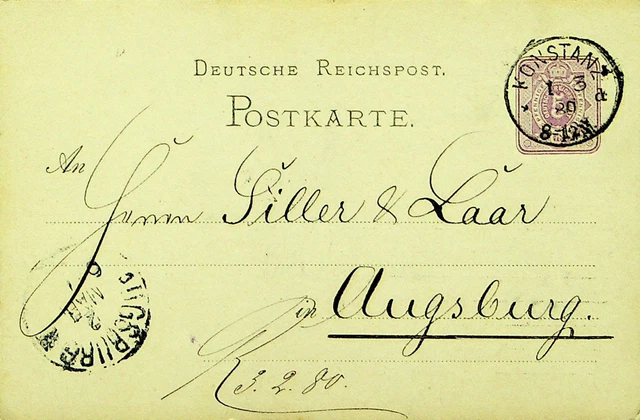 DEUTSCHE REICHSPOST.
KONSTANZ
1 3
80
8-12N
POSTKARTE.
An
Herrn Siller & Laar
in Augsburg.
R 3. 2. 80.